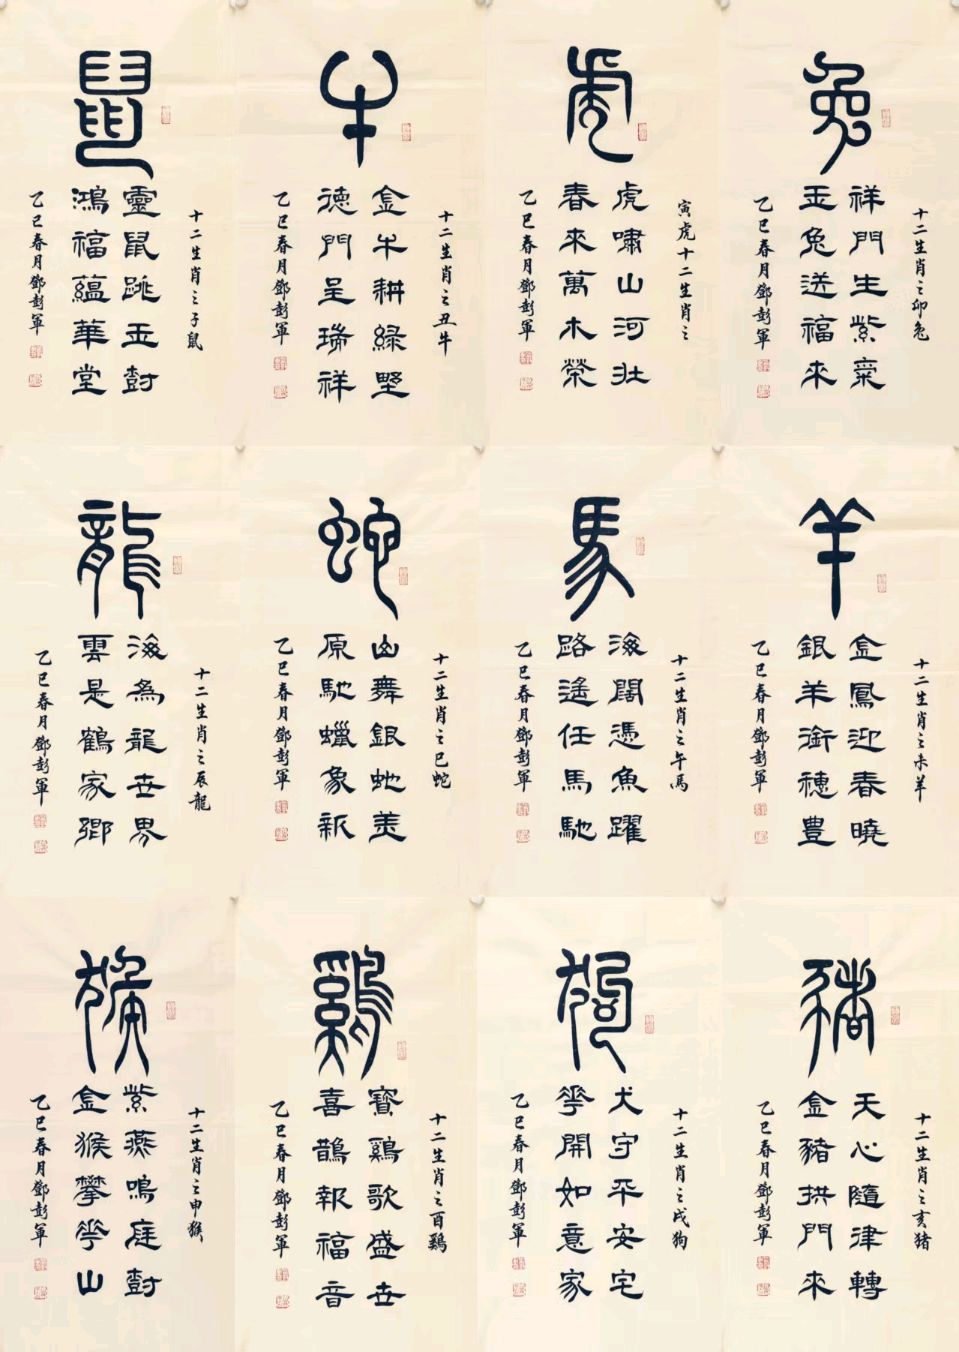 鼠
十二生肖之子鼠
靈鼠跳玉樹
鴻福蘊華堂
乙巳春月鄧彭軍
牛
十二生肖之丑牛
金牛耕綠野
德門呈瑞祥
乙巳春月鄧彭軍
虎
寅虎十二生肖之
虎嘯山河壯
春來萬木榮
乙巳春月鄧彭軍
兔
十二生肖之卯兔
祥門生紫氣
玉兔送福來
乙巳春月鄧彭軍
龍
十二生肖之辰龍
海為龍世界
雲是鶴家鄉
乙巳春月鄧彭軍
蛇
十二生肖之巳蛇
山舞銀蛇美
原馳蠟象新
乙巳春月鄧彭軍
馬
十二生肖之午馬
海闊憑魚躍
路遙任馬馳
乙巳春月鄧彭軍
羊
十二生肖之未羊
金鳳迎春曉
銀羊銜穗豊
乙巳春月鄧彭軍
猴
十二生肖之申猴
紫燕鳴庭樹
金猴攀花山
乙巳春月鄧彭軍
鷄
十二生肖之酉鷄
寶鷄歌盛世
喜鵲報福音
乙巳春月鄧彭軍
狗
十二生肖之戌狗
犬守平安宅
花開如意家
乙巳春月鄧彭軍
豬
十二生肖之亥猪
天心隨律轉
金豬拱門來
乙巳春月鄧彭軍